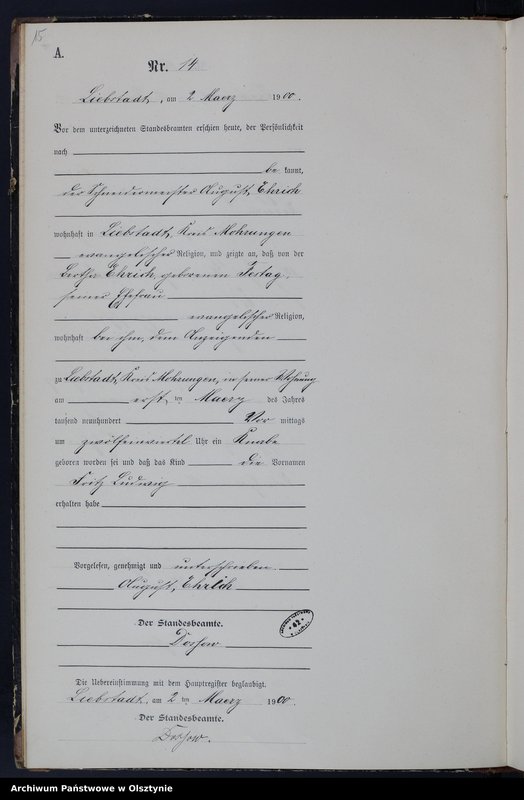 15
A.
Nr. 14
Liebstadt, am 2 Maerz 1900.
Vor dem unterzeichneten Standesbeamten erschien heute, der Persönlichkeit
nach
be kannt,
der Schneidermeister August Ehrich
wohnhaft in Liebstadt, Kreis Mohrungen
evangelischer Religion, und zeigte an, daß von der
Bertha Ehrich, geborenen Festag,
seiner Ehefrau
evangelischer Religion,
wohnhaft bei ihm, dem Anzeigenden
zu Liebstadt, Kreis Mohrungen, in seiner Wohnung
am ersten Maerz des Jahres
tausend neunhundert Vor mittags
um Uhr ein Knabe
geboren worden sei und daß das Kind die Vornamen
Fritz Ludwig
erhalten habe
Vorgelesen, genehmigt und unterschrieben.
August, Ehrlich
Der Standesbeamte.
Dossow
Die Uebereinstimmung mit dem Hauptregister beglaubigt.
Liebstadt, am 2 ten Maerz 1900.
Der Standesbeamte.
Dossow.
Archiwum Państwowe w Olsztynie